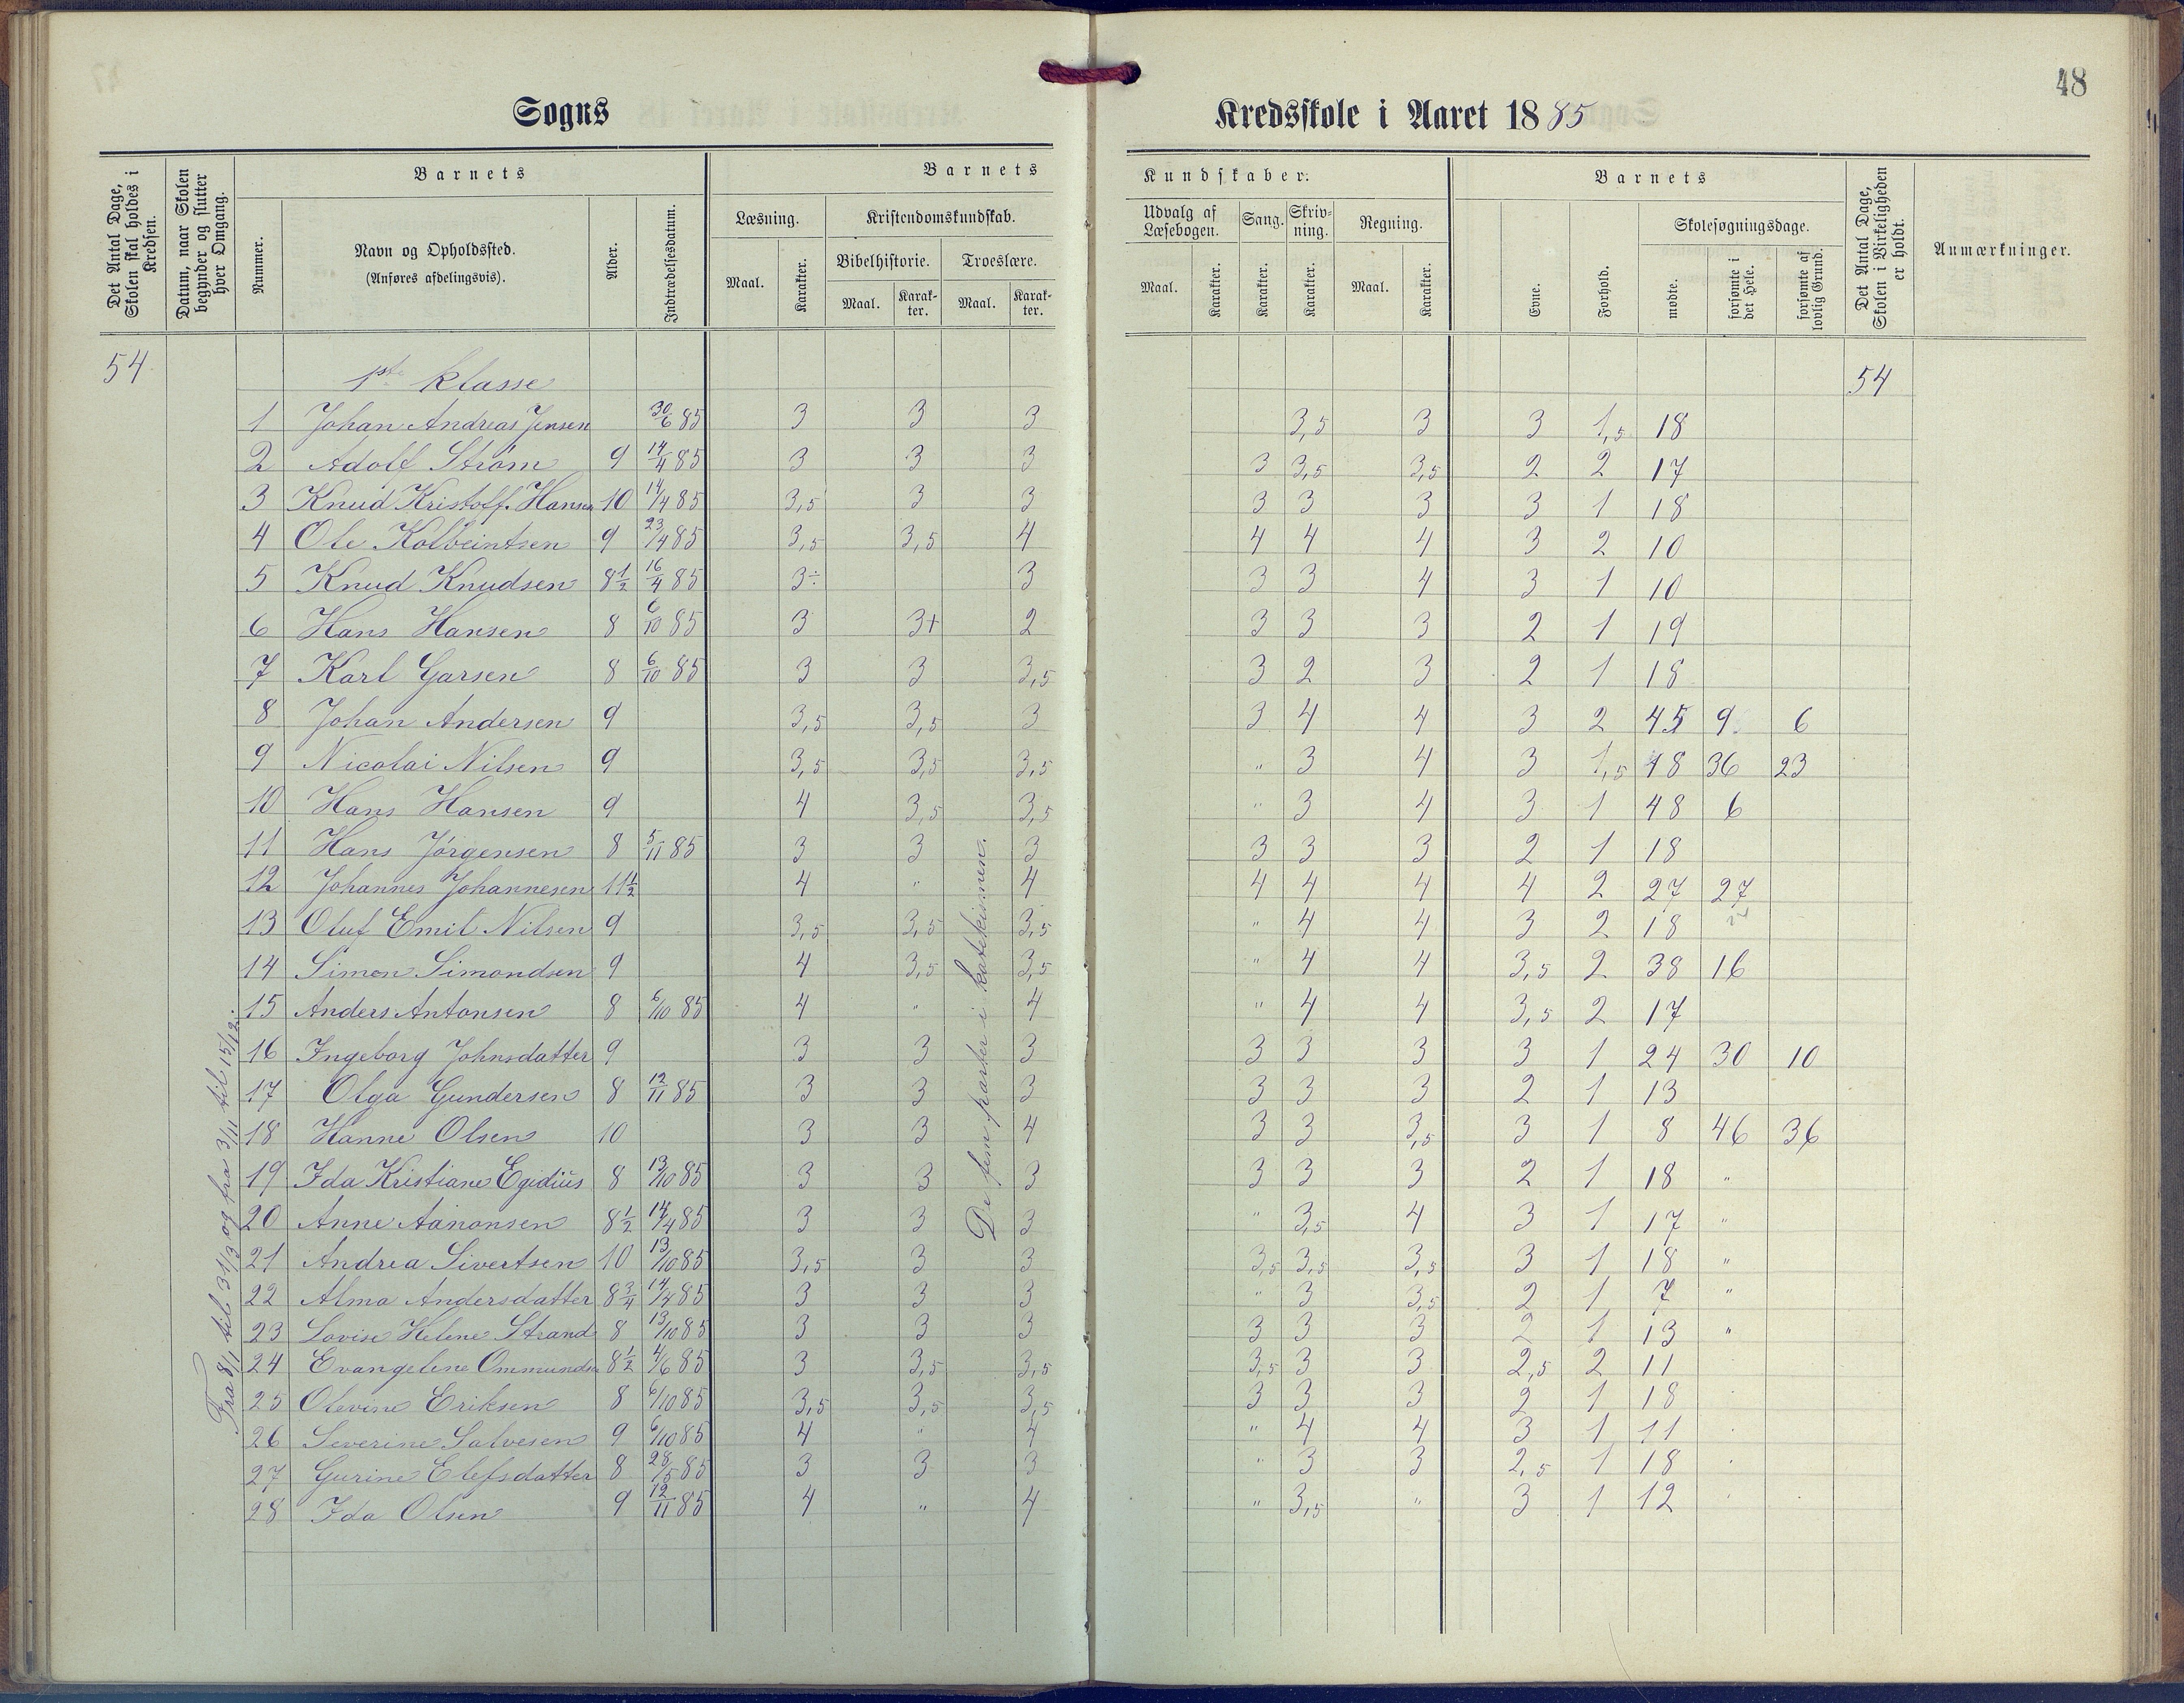 48
Sogns
Kredsskole i Aaret 1885
Det Antal Dage, Skolen skal holdes i Kredsen.
Datum, naar Skolen begynder og slutter hver Omgang.
Barnets
Nummer.
Navn og Opholdssted.
(Anføres afdelingsvis).
Alder.
Indtrædelsesdatum.
Barnets
Læsning.
Maal.
Karakter.
Kristendomskundskab.
Bibelhistorie.
Maal.
Karakter.
Troeslære.
Maal.
Karakter.
Kundskaber.
Udvalg af Læsebogen.
Maal.
Karakter.
Sang.
Karakter.
Skrivning.
Karakter.
Regning.
Maal.
Karakter.
Barnets
Evne.
Forhold.
Skolesøgningsdage.
mødte.
forsømte i det Hele.
forsømte af lovlig Grund.
Det Antal Dage, Skolen i Virkeligheden er holdt.
Anmærkninger.
54 1ste klasse 54
1 Johan Andreas Jensen 30/6 85 3 3 3 3,5 3 3 1,5 18
2 Adolf Strøm 9 14/4 85 3 3 3 3 3,5 3,5 2 2 17
3 Knud Kristoff. Hansen 10 14/4 85 3,5 3 3 3 3 3 3 1 18
4 Ole Kolbeintsen 9 23/4 85 3,5 3,5 4 4 4 4 3 2 10
5 Knud Knudsen 8 1/2 16/4 85 3÷ 3 3 3 4 3 1 10
6 Hans Hansen 8 6/10 85 3 3+ 2 3 3 3 2 1 19
7 Karl Garsen 8 6/10 85 3 3 3,5 3 2 3 2 1 18
8 Johan Andersen 9 3,5 3,5 3 3 4 4 3 2 45 9 6
9 Nicolai Nilsen 9 3,5 3,5 3,5 " 3 4 3 1,5 18 36 23
10 Hans Hansen 9 4 3,5 3,5 " 3 4 3 1 48 6
11 Hans Jørgensen 8 5/11 85 3 3 3 3 3 3 2 1 18
12 Johannes Johannesen 11 1/2 4 " 4 4 4 4 4 2 27 27
13 Oluf Emil Nilsen 9 3,5 3,5 3,5 " 4 4 3 2 18
14 Simon Simondsen 9 4 3,5 3,5 " 4 4 3,5 2 38 16
15 Anders Antonsen 8 6/10 85 4 " 4 " 4 4 3,5 2 17
16 Ingeborg Johnsdatter 9 3 3 3 3 3 3 3 1 24 30 10
17 Olga Gundersen 8 12/11 85 3 3 3 3 3 3 2 1 13
18 Hanne Olsen 10 3 3 4 3 3 3,5 3 1 8 46 36
19 Ida Kristiane Egidius 8 13/10 85 3 3 3 3 3 3 2 1 18 "
20 Anne Aanonsen 8 1/2 14/4 85 3 3 3 " 3,5 4 3 1 17 "
21 Andrea Sivertsen 10 13/10 85 3,5 3 3 3,5 3,5 3,5 3 1 18 "
22 Alma Andersdatter 8 3/4 14/4 85 3 3 3 " 3 3,5 2 1 7 "
23 Lovise Helene Strand 8 13/10 85 3 3 3 3 3 3 2 1 13 "
24 Evangeline Ommundsen 8 1/2 4/6 85 3 3,5 3,5 3,5 3 3 2,5 2 11
25 Olevine Eriksen 8 6/10 85 3,5 3,5 3,5 3 3 3 2 1 18
26 Severine Salvesen 9 6/10 85 4 " 4 " 4 4 3 1 11
27 Gurine Elefsdatter 8 28/5 85 3 3 3 " 3 3 2,5 1 18
28 Ida Olsen 9 12/11 85 4 " 4 " 3,5 " 3 1 12
Fra 8/1 til 31/3 og fra 3/11 til 15/12.
De fem parter i katekismen.